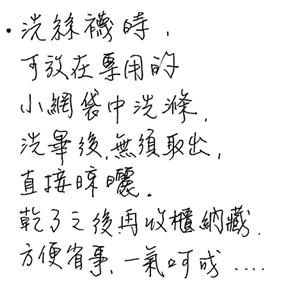 •洗絲襪時,
可放在專用的
小網袋中洗滌,
洗畢後,無須取出,
直接晾曬.
乾了之後再收櫃納藏.
方便省事,一氣呵成....